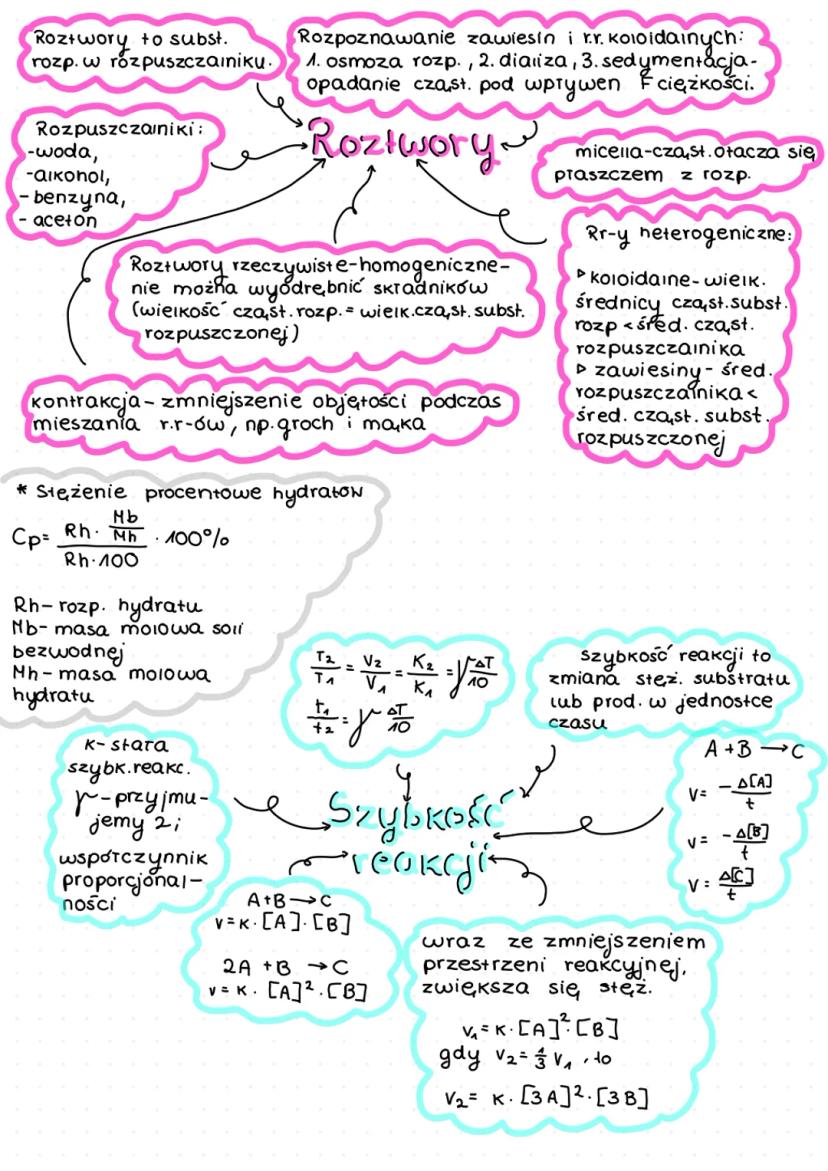 Roztwory to subst.
rozp. w rozpuszczalniku.
Rozpoznawanie zawiesin i r.r. koloidalnych:
1. osmoza rozp., 2. dializa, 3. sedymentacja-
opadanie cząst. pod wpływen F ciężkości.
Rozpuszczalniki:
-woda,
-alkohol,
-benzyna,
- aceton
Roztwory
micella-cząst. otacza się
płaszczem z rozp.
Roztwory rzeczywiste-homogeniczne-
nie można wyodrębnić składników
(wielkość cząst. rozp. = wielk. cząst. subst.
rozpuszczonej)
Rr-y heterogeniczne:
▷ koloidalne-wielk.
średnicy cząst. subst.
rozp < śred. cząst.
rozpuszczalnika
▷ zawiesiny- śred.
rozpuszczalnika <
śred. cząst. subst.
rozpuszczonej
kontrakcja-zmniejszenie objętości podczas
mieszania r.r-ów, np. groch i mąka
* Stężenie procentowe hydratów
Cp= (Rh · Mb/Mh)/(Rh·100) · 100%
Rh- rozp. hydratu
Mb- masa molowa soli
bezwodnej
Mh- masa molowa
hydratu
T₂/T₁ = V₂/V₁ = K₂/K₁ = γ ΔT/10
t₁/t₂ = γ ΔT/10
szybkość reakcji to
zmiana stęż. substratu
lub prod. w jednostce
czasu
k- stała
szybk. reakc.
γ -przyjmu-
jemy 2;
współczynnik
proporcjonal-
ności
Szybkość
reakcji
A + B → C
v= -Δ[A]/t
v= -Δ[B]/t
v= Δ[C]/t
A+B → C
v= k · [A] · [B]
2A + B → C
v= k · [A]² · [B]
wraz ze zmniejszeniem
przestrzeni reakcyjnej,
zwiększa się stęż.
v₁= k · [A]² · [B]
gdy v₂= 1/3 v₁, to
v₂= k · [3A]² · [3B]